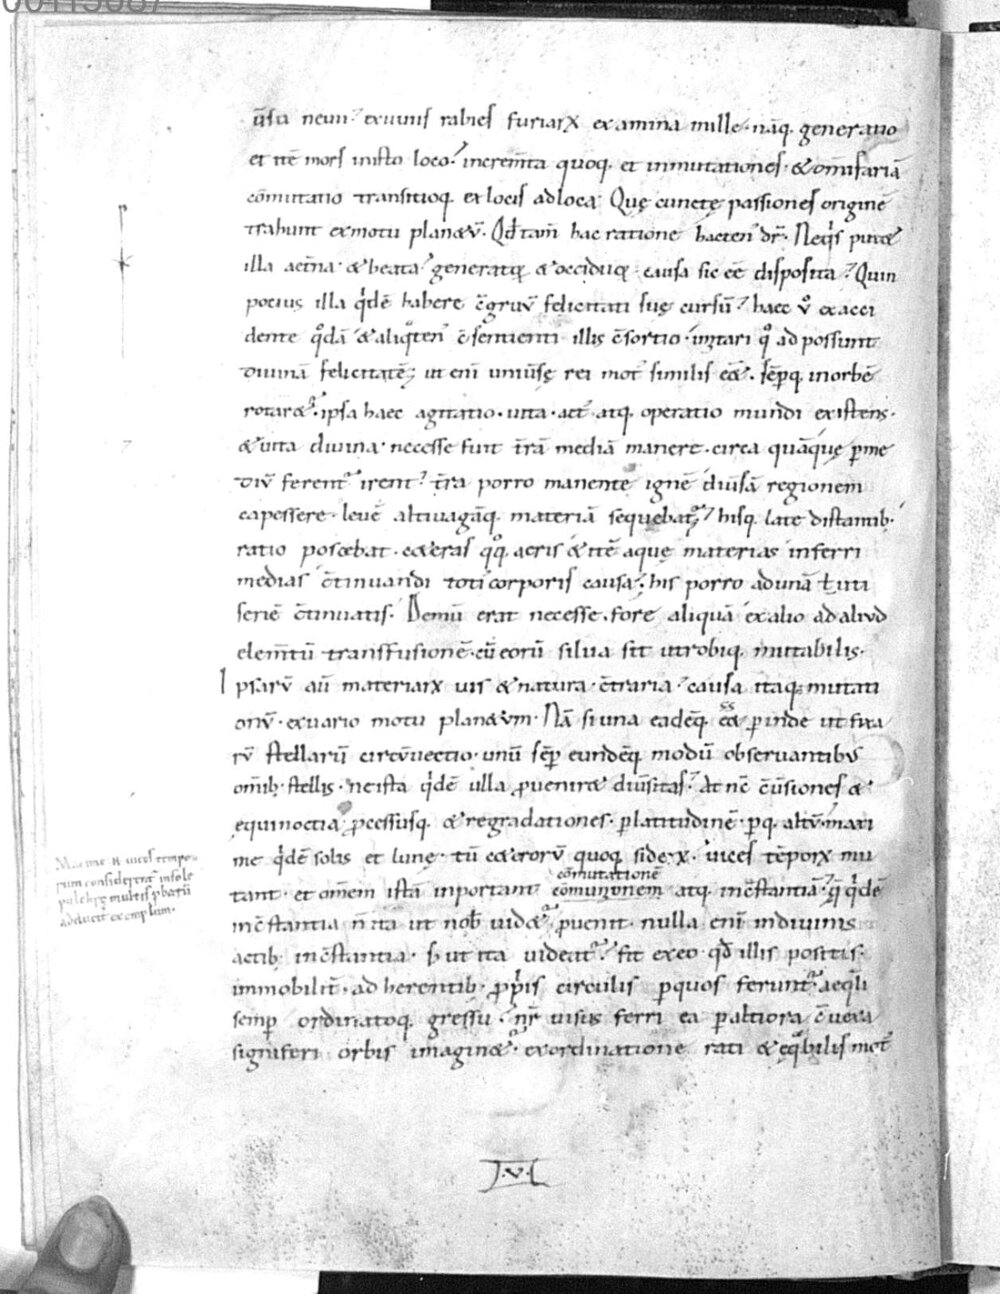 ūsū neun? exuuiis rabies furiarꝝ examina mille. nāq. generatio
et itē mors in isto loco. incremta quoq. et inmutationes. & omīfariā
cōmutatio transitioq. ex locis ad loca. Quę cunctę passiones originē
trahunt ex motu planetꝝ. Qd tam̄ hac ratione hacten dr̄. Neqis putet
illa aetn̄a. & beata. generatę & occiduę causa sic eē disposita? Quin
pocius illa qdē habere c̄gruū felicitati suę cursū? haec ũ ex acci
dente qdā. & aliqten c̄sentienti illis c̄sortio. imitari q ad possunt
diuinā felicitatē; ut enī uniūsę rei mot similis eēt. sēpq. in orbē
rotaret. ipsa haec agitatio. uita. act atq. operatio mundi existens.
& uita diuina. necesse fuit t̄rā mediā manere. circa quā quę p me
diū ferent irent? t̄ra porro manente ignē diuīsā regionem
capessere. leuē altiuagāq. materiā sequebat? hisq. late distantib.
ratio poscebat. cęteras qq aeris & itē aquę materias inferri
medias c̄tinuandi toti corporis causa. his porro ad unā t uti
seriē c̄tinuatis. Demū erat necesse. fore aliquā ex alio ad aliud
elemtū transfusionē. cū eorū silua sit utrobiq. mutabilis.
Ipsarū aū materiarꝝ uis & natura. c̄traria? causa itaq. mutati
onū. ex uario motu planetꝝm. Nā si una eadēq. eēt pinde ut fixa
rū stellarū circūuectio. unū sēp eundēq. modū obseruantibus
omīb. stellis. ne ista qdē ulla pueniret diuīsitas? At nc̄ c̄uīsiones &
equinoctia. pcessusq. & regradationes. platitudinē. pq. altū. maxi
me qdē solis et lunę. tū cęterorū quoq. siderꝝ. uices tēporꝝ mu
cōmutationē
tant. et omēm istā inportant cōmunionem atq. inc̄stantiā. q qdē
inc̄stantia n̄ ita ut nob uidet puenit. nulla enī in diuinis
actib. inc̄stantia. s ut ita uideat? fit ex eo qd illis positis.
immobilit. adherentib. ppiis circulis p quos ferunt. aeqli
semp ordinatoq. gressu. nr̄ uisus ferri ea p altiora c̄uexa
signiferi orbis imaginet. ex ordinatione rati & eqbilis mot
Maxime  uices tempo
rum considerent in sole
pulchre multis pbatū
adducit exemplum.
.V.